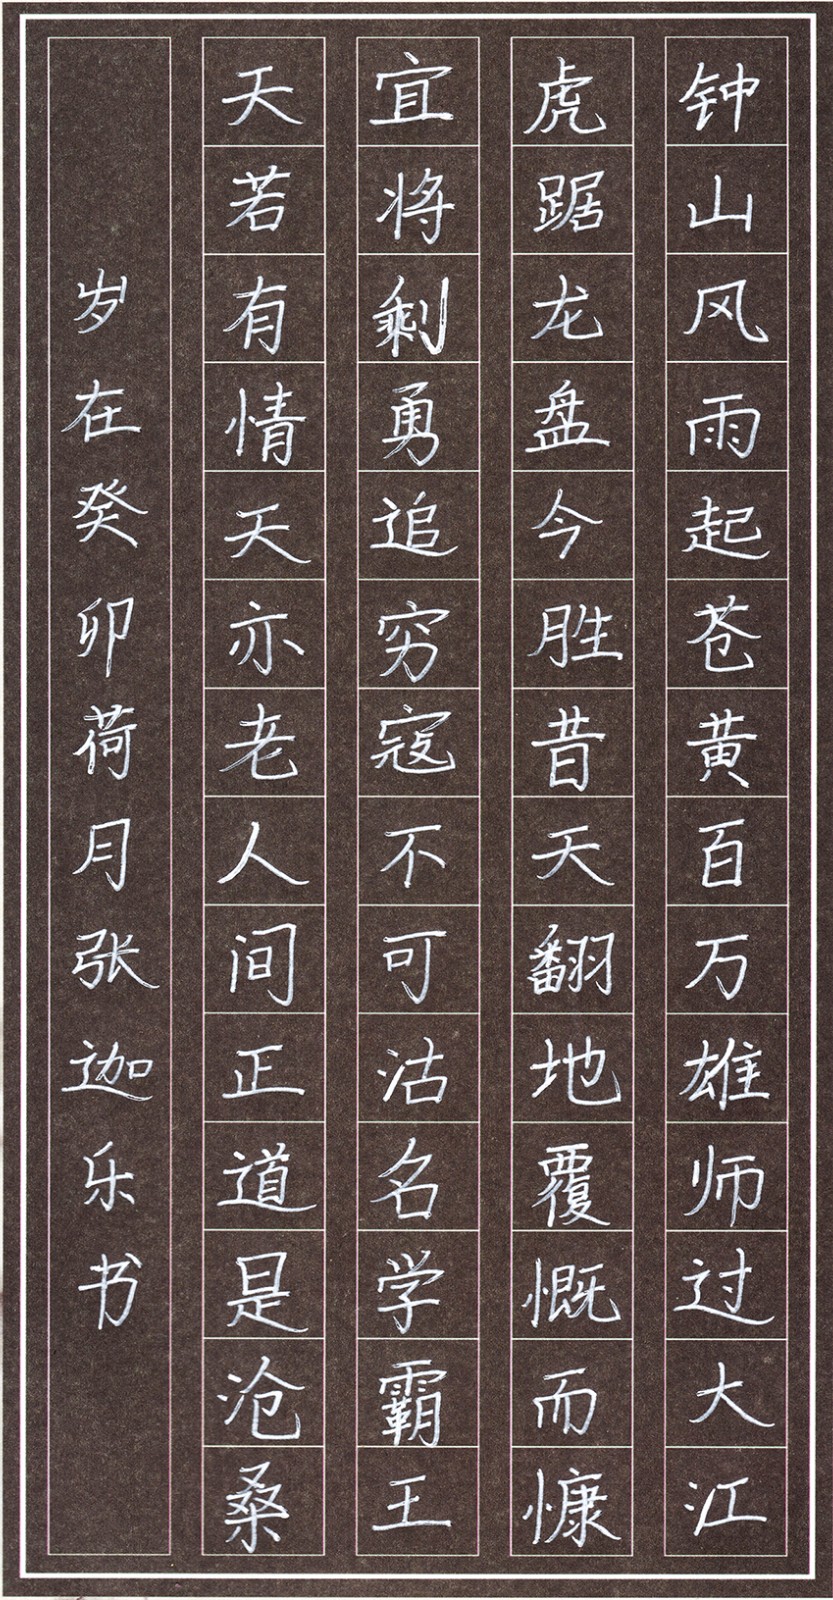 钟山风雨起苍黄百万雄师过大江
虎踞龙盘今胜昔天翻地覆慨而慷
宜将剩勇追穷寇不可沽名学霸王
天若有情天亦老人间正道是沧桑
岁在癸卯荷月张迦乐书